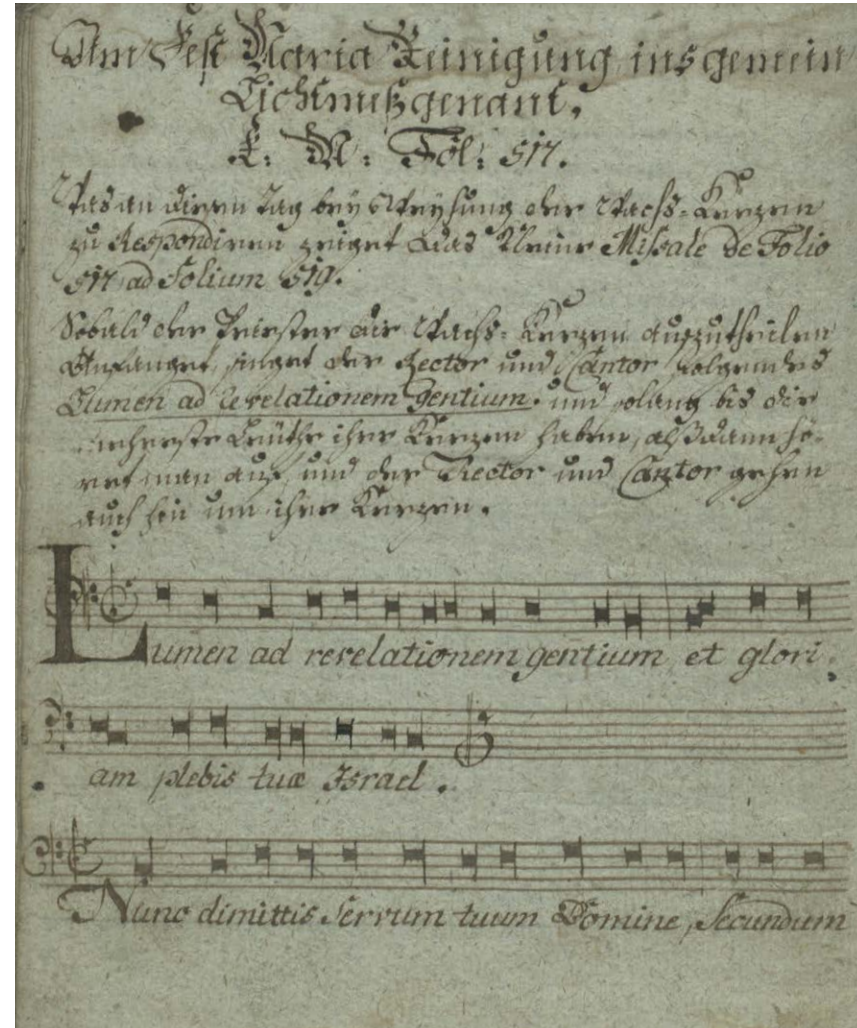 Am Fest Maria Reinigung ins gemein
Lichtmeß genant,
E: M: Fol: 517.
Was an diesem Tag bey Weyhung der Wachs=Kerzen
zu Respondiren zeiget das kleine Missale de Folio
517 ad Folium 519.
Sobald der Priester die Wachs=Kerzen auszutheilen
Anfanget, singet der Rector und Cantor folgendes
Lumen ad revelationem gentium. und solang bis die
mehreste Leuthe ihre Kerzen haben, alßdann hö-
ret man auf, und der Rector und Cantor gehen
auch hin um ihre Kerzen.
Lumen ad revelationem gentium et glori:
am plebis tuæ Israel.
Nunc dimittis servum tuum Domine, secundum